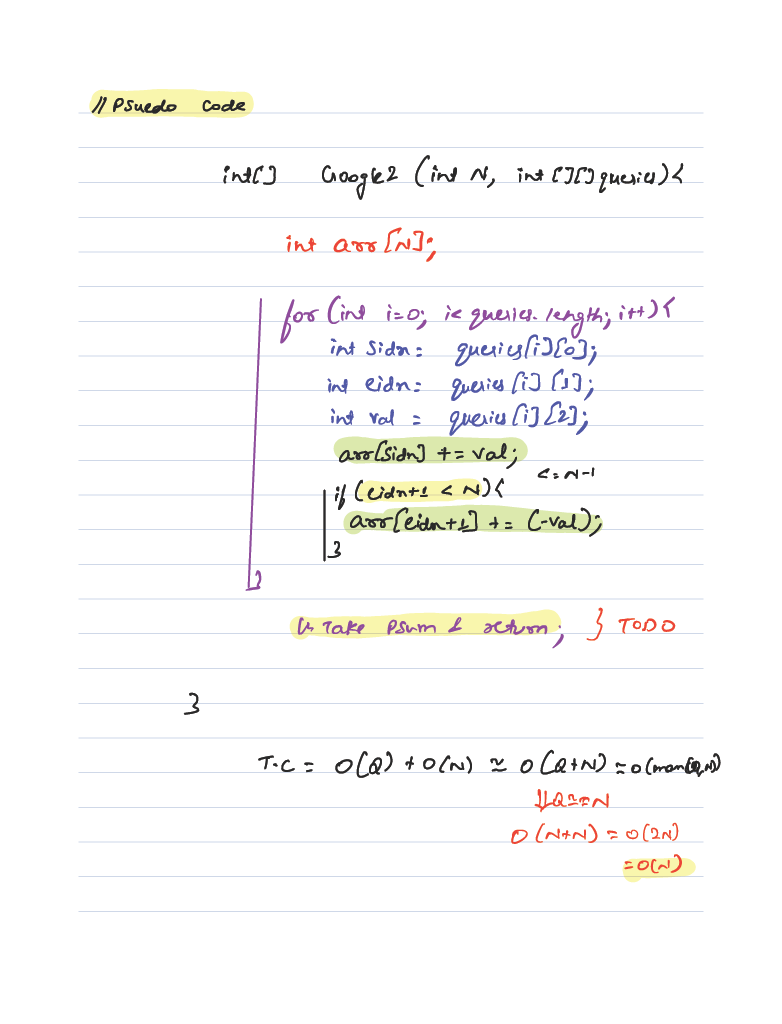 // Psuedo Code
int[] Google2 (int N, int [][] queries) {
int arr[N];
for (int i=0; i< queries.length; i++) {
int sidx = queries[i][0];
int eidx = queries[i][1];
int val = queries[i][2];
arr[sidx] += val;
<=N-1
if (eidx+1 < N) {
arr[eidx+1] += (-val);
}
}
↳ Take Psum & return; } TODO
}
T.C = O(Q) + O(N) ≈ O(Q+N) ≈ O(max(Q,N))
⇓ Q≈=N
O(N+N) = O(2N)
= O(N)